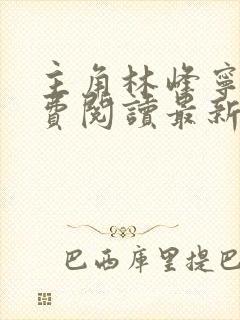 主角林峰寧
費閱讀最新
巴西库里提巴